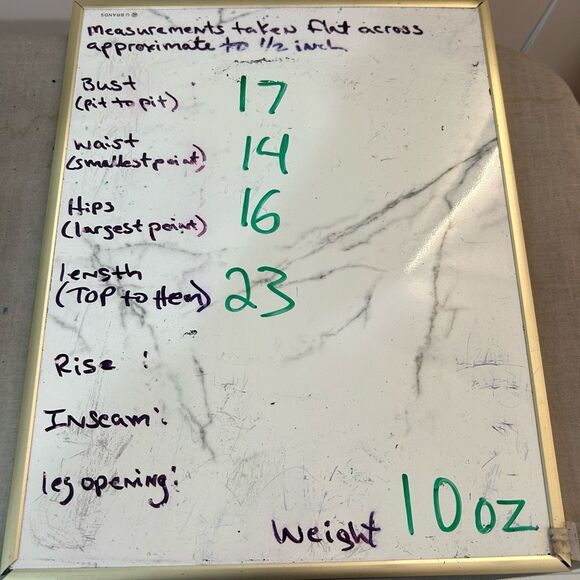 U BRANDS
measurements taken flat across
approximate to 1/2 inch
Bust
(pit to pit)
17
waist
(smallest point)
14
Hips
(largest point)
16
length
(TOP to Hem)
23
Rise :
Inseam:
leg opening:
weight 10 oz